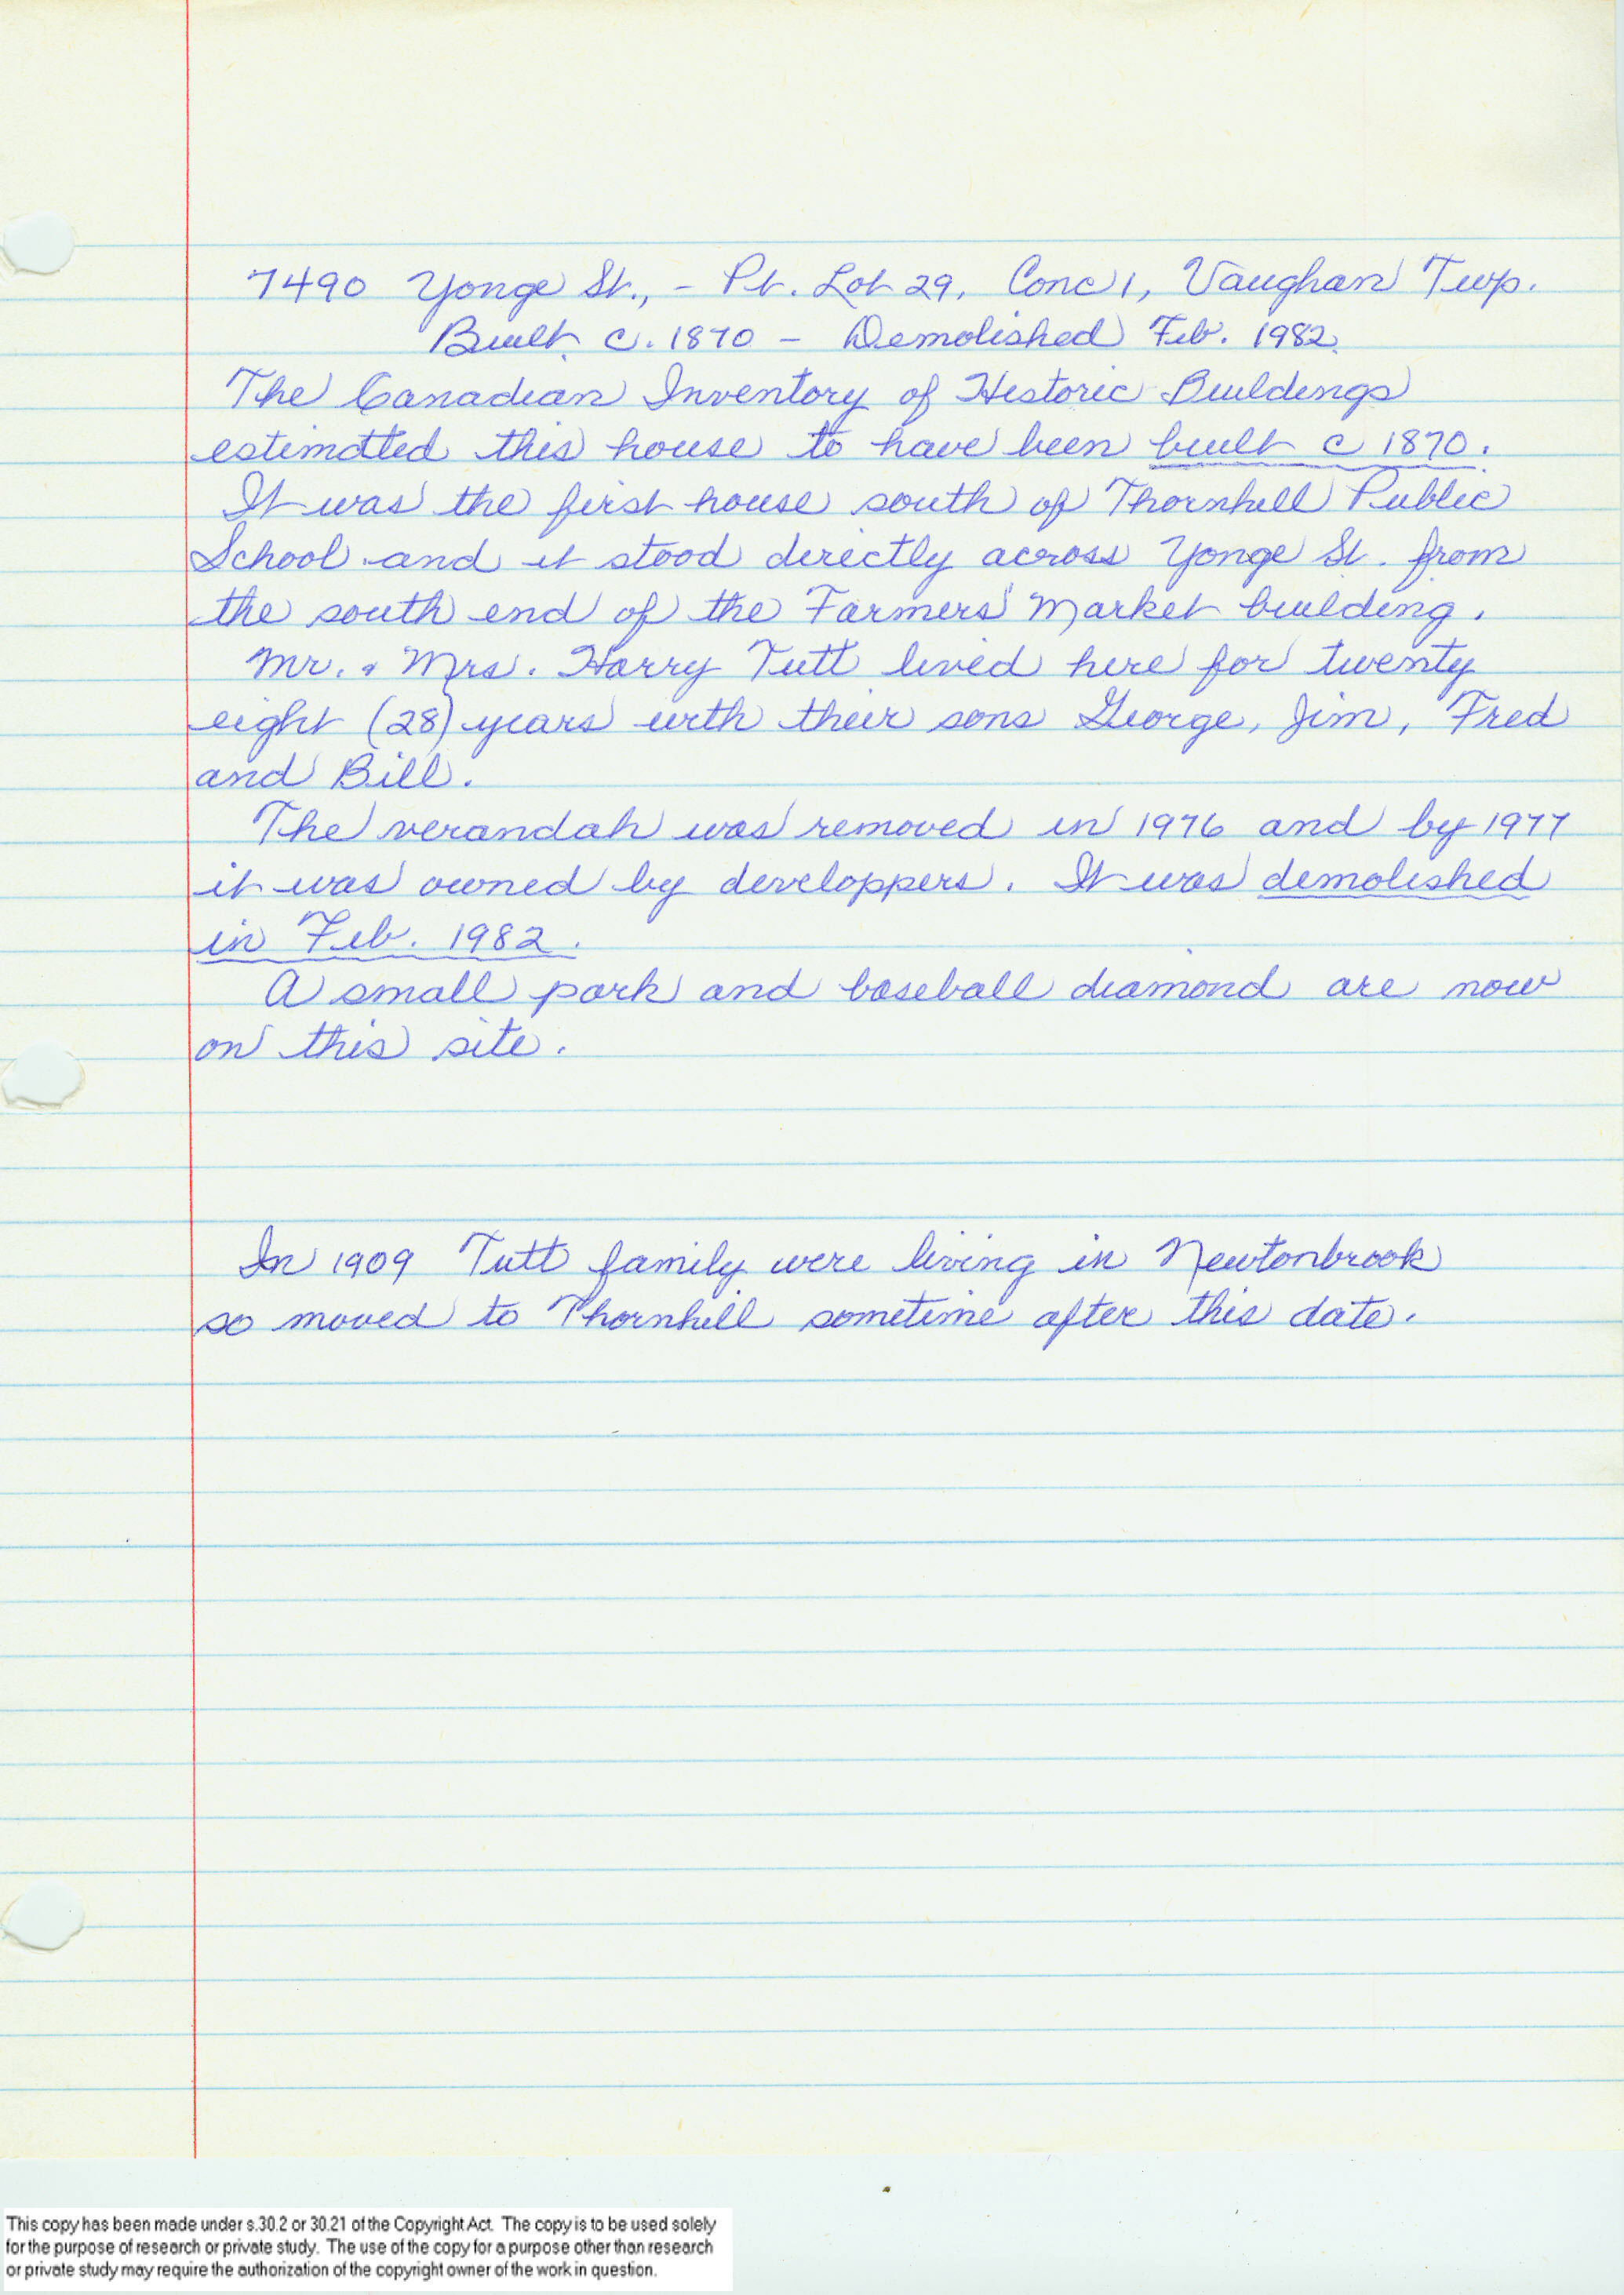 7490 Yonge St., - Pt. Lot 29, Conc 1, Vaughan Twp.
Built c. 1870 - Demolished Feb. 1982.
The Canadian Inventory of Historic Buildings
estimatted this house to have been built c 1870.
It was the first house south of Thornhill Public
School and it stood directly across Yonge St. from
the south end of the Farmers' Market building.
Mr. & Mrs. Harry Tutt lived here for twenty
eight (28) years with their sons George, Jim, Fred
and Bill.
The verandah was removed in 1976 and by 1977
it was owned by developpers. It was demolished
in Feb. 1982.
A small park and baseball diamond are now
on this site.
In 1909 Tutt family were living in Newtonbrook
so moved to Thornhill sometime after this date.
This copy has been made under s.30.2 or 30.21 of the Copyright Act. The copy is to be used solely
for the purpose of research or private study. The use of the copy for a purpose other than research
or private study may require the authorization of the copyright owner of the work in question.